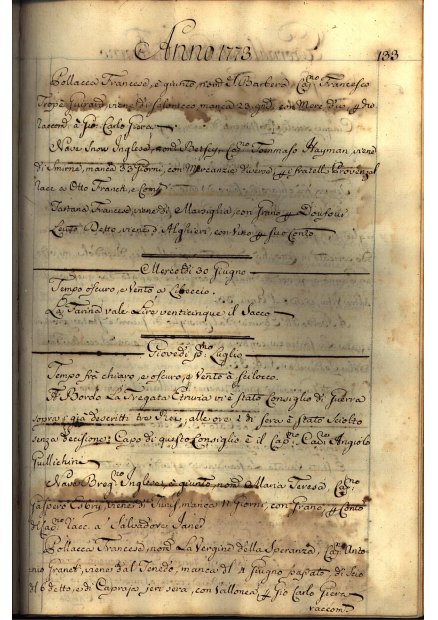 Anno 1773
133
Pollacca Francese, è giunto, nom.ta Il Barbero, Cap.no Francesco
Trope Guirard, viene di Salonicco, manca 23 gni, con Merc. d.so, p. d.o
Raccom. a Gio Carlo Giera
Nave Snow Inglese, nom.ta Betsey, Cap.no Tommaso Hayman, viene
di Smirne, manca 33 Giorni, con Mercanzie diverse, p. i fratelli Provenzal
Race a Otto Franck, e Comp.
Tartana Francese, viene di Marsiglia, con Grano p. Doufour
Leuto Detto, viene d'Alghieri, con Vino p. suo Conto
Mercoldi 30 Giugno
Tempo oscuro, e Vento a Libeccio.
La Farina vale Lire venticinque il Sacco
Giovedi p.mo Luglio
Tempo frà chiaro, e oscuro, e Vento à Scilocco.
A Bordo La Fregata Etruria vi è stato Consiglio di Guerra
sopra i già descritti tre Rei, alle ore 2 di sera è stato Sciolto
senza decisione: Capo di questo Consiglio è il Cap.no Cav.re Angiolo
Guillichini
Nave Breg.no Inglese, è giunto, nom.ta Maria Teresa, Cap.no
Gaspero Esbry, viene di Tunis, manca 11 Giorni, con Grano, p. Conto
di Cap.no Race. a Salvadore Janer
Pollacca Francese nom.ta La Vergine della Speranza, Cap.no Anto
nio Franct, viene dal Tenedo, manca dal 4 Giugno passato, di Scio
del 6 detto, e di Capraja jeri sera, con Vallonea p. Gio Carlo Giera
raccom.